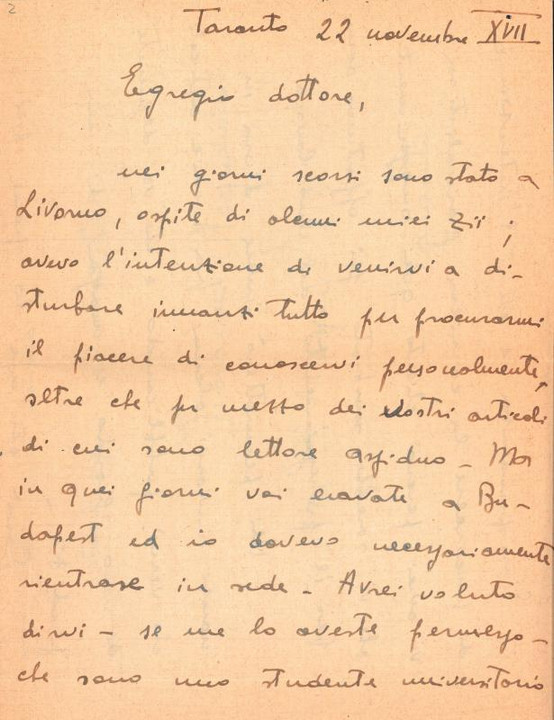 2
Taranto 22 novembre XVII
Egregio dottore,
nei giorni scorsi sono stato a
Livorno, ospite di alcuni miei zii;
avevo l'intenzione di venirvi a di-
sturbare innanzi tutto per procurarmi
il piacere di conoscervi personalmente,
oltre che per mezzo dei Vostri articoli
di cui sono lettore assiduo - Ma
in quei giorni voi eravate a Bu-
dapest ed io dovevo necessariamente
rientrare in sede - Avrei voluto
dirvi - se me lo aveste permesso -
che sono uno studente universitario